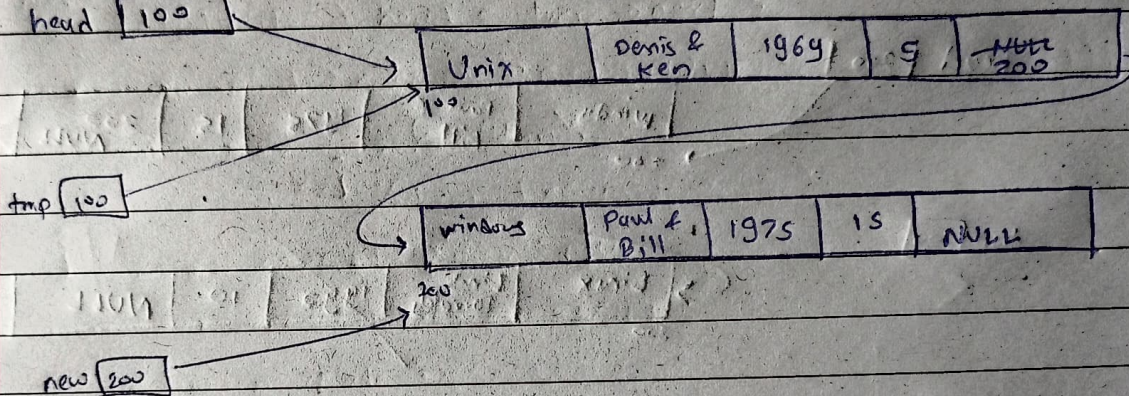 head 100
Unix Denis & Ken 1969 5 NULL 200
100
tmp 100
windows Paul & Bill 1975 15 NULL
200
new 200